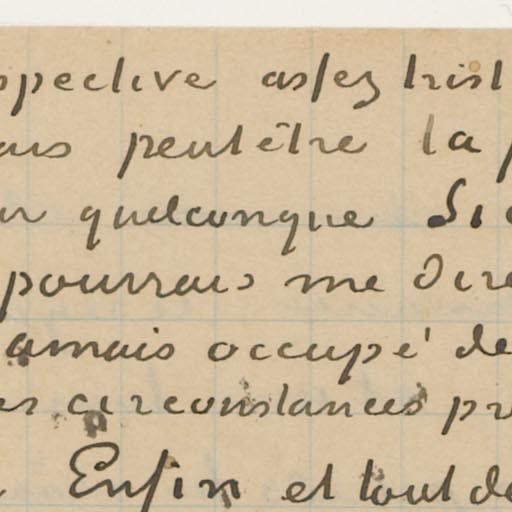 spective assez trist
ais peutêtre la p
ur quelconque Si
pourrais me dire
amais occupé de
es circonstances pr
Enfin et tout de